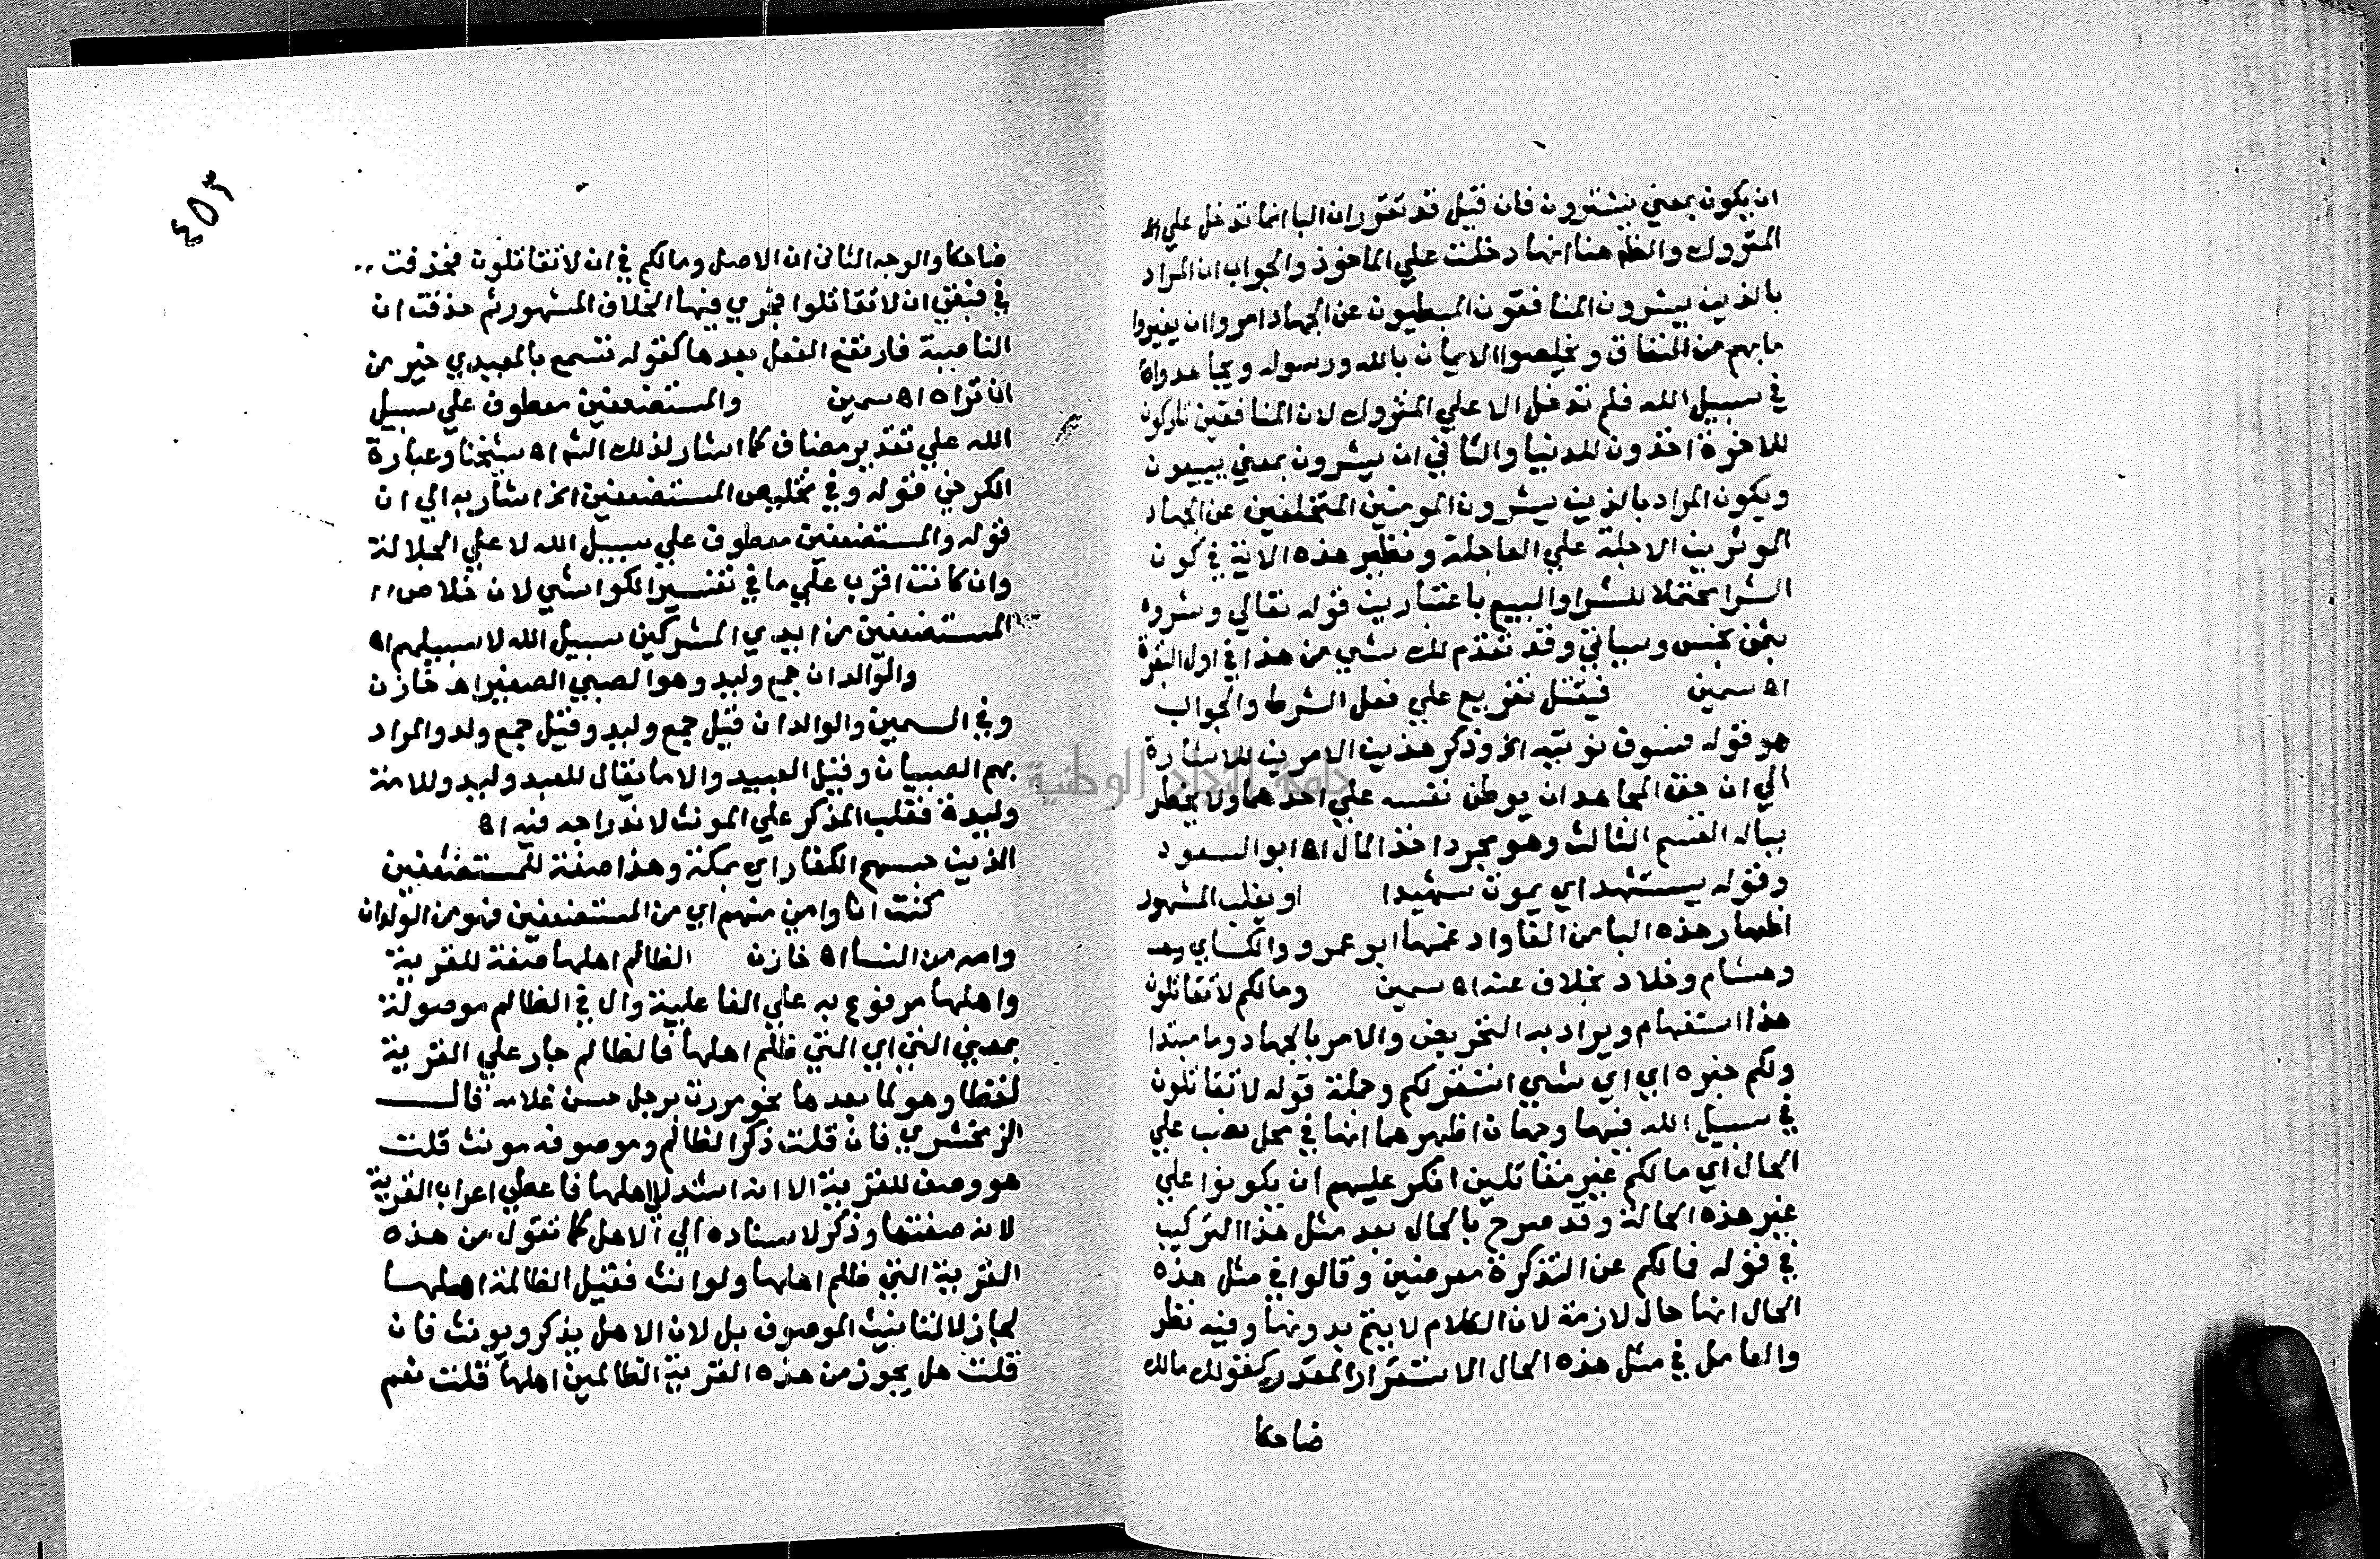 ان يكون بمعني يشترون فان قيل قد تقرر ان البا انما تدخل علي
المتروك والظم هنا انها دخلت علي الماخوذ والجواب ان المراد
بالذين يشرون المنافقون المبطيون عن الجهاد امروا ان يغيروا
ما بهم من النفاق و يخلصوا الايمان بالله ورسوله و يجاهدوا
في سبيل الله فلم تدخل الا علي المتروك لان المنافقين تاركون
للاخرة اخذون للدنيا والثاني ان يشرون بمعني يبيعون
ويكون المراد بالذين يشرون المومنين المتخلفين عن الجهاد
الموثرين الاجلة علي العاجلة ونظير هذه الاية في كون
الشرا محتملا للشرا والبيع باعتبارين قوله تعالي وشروه
بثمن بخس وسياتي وقد تقدم لك شي من هذا في اول البقرة
اه سمين فيقتل تفريع علي فعل الشرط والجواب
هو قوله فسوف نوتيه الخ وذكر هذين الامرين للاشارة
الي ان حق المجاهد ان يوطن نفسه علي احدهما ولا يخطر
بباله القسم الثالث وهو مجرد اخذ المال اه ابو السعود
وقوله يستشهد اي يموت شهيدا او يغلب المشهور
اظهار هذه البا من الفا وادغمها ابو عمرو والكساي
وهشام وخلاد بخلاف عنه اه سمين ومالكم لا تقاتلون
هذا استفهام ويراد به التحريض والامر بالجهاد وما مبتدا
ولكم خبره اي اي شي استقر لكم وجملة قوله لا تقاتلون
في سبيل الله فيها وجهان اظهرهما انها في محل نصب علي
الحال اي مالكم غير مقاتلين انكر عليهم ان يكونوا علي
غير هذه الحالة وقد صرح بالحال بعد مثل هذا التركيب
في قوله فمالكم عن التذكرة معرضين وقالوا في مثل هذه
الحال انها حال لازمة لان الكلام لا يتم بدونها وفيه نظر
والعامل في مثل هذه الحال الاستقرار المقدر كقولك مالك
ضاحكا
٤٥٣
ضاحكا والوجه الثاني ان الاصل ومالكم في ان لا تقاتلون فحذفت
في فبقي ان لا تقاتلوا فجري فيها الخلاف المشهور ثم حذفت ان
الناصبة فارتفع الفعل بعدها كقوله تسمع بالمعيدي خير من
ان تراه اه سمين والمستضعفين معطوف علي سبيل
الله علي تقدير مضاف كما اشار لذلك الشم اه شيخنا وعبارة
الكرخي قوله وفي تخليص المستضعفين الخ اشار به الي ان
قوله والمستضعفين معطوف علي سبيل الله لا علي الجلالة
وان كانت اقرب علي ما في تفسير الكواشي لان خلاص
المستضعفين من ايدي المشركين سبيل الله لا سبيلهم اه
والوالدان جمع وليد وهو الصبي الصغير اه خازن
وفي السمين والوالدان قيل جمع وليد وقيل جمع ولد والمراد
بهم الصبيان وقيل العبيد والاما يقال للعبد وليد وللامة
وليدة فغلب المذكر علي المونث لاندراجه فيه اه
الذين حبسهم الكفار اي بمكة وهذا صفة للمستضعفين
كنت انا وامي منهم اي من المستضعفين فهو من الولدان
وامه من النسا اه خازن الظالم اهلها صفة للقرية
واهلها مرفوع به علي الفاعلية وال في الظالم موصولة
بمعني التي اي التي ظلم اهلها فالظالم جار علي القرية
لفظا وهو لما بعدها نحو مررت برجل حسن غلامه قال
الزمخشري فان قلت ذكر الظالم وموصوفه مونث قلت
هو وصف للقرية الا انه اسند الي اهلها فاعطي اعراب القرية
لانه صفتها وذكر لاسناده الي الاهل كما تقول من هذه
القرية التي ظلم اهلها ولو انث فقيل الظالمة اهلها
لجاز لا لتانيث الموصوف بل لان الاهل يذكر ويونث فان
قلت هل يجوز من هذه القرية الظالمين اهلها قلت نعم